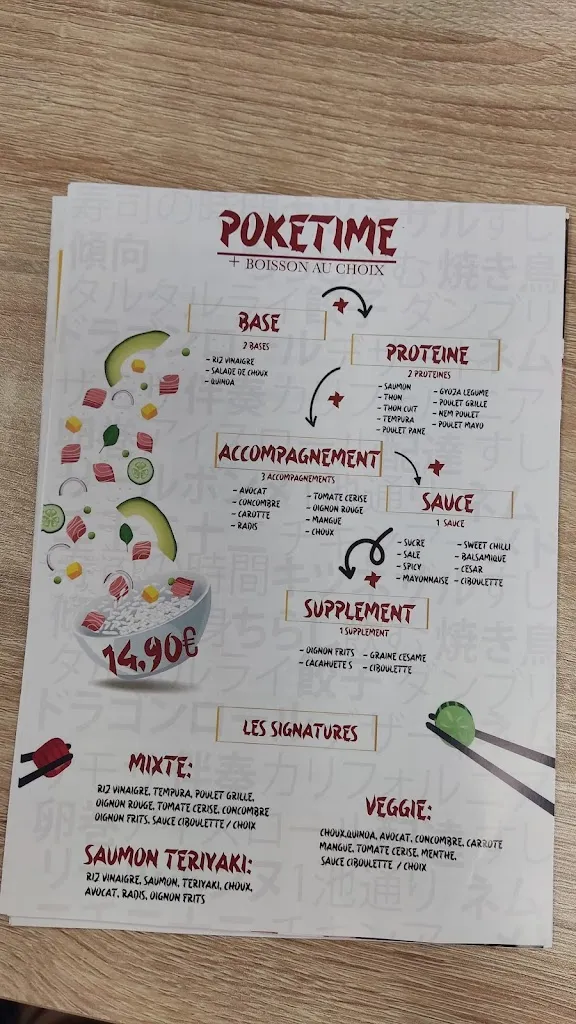 POKETIME
+ BOISSON AU CHOIX
BASE
2 BASES
- RIZ VINAIGRE
- SALADE DE CHOUX
- QUINOA
PROTEINE
2 PROTEINES
- SAUMON
- THON
- THON CUIT
- TEMPURA
- POULET PANE
- GYOZA LEGUME
- POULET GRILLE
- NEM POULET
- POULET MAYO
ACCOMPAGNEMENT
3 ACCOMPAGNEMENTS
- AVOCAT
- CONCOMBRE
- CAROTTE
- RADIS
- TOMATE CERISE
- OIGNON ROUGE
- MANGUE
- CHOUX
SAUCE
1 SAUCE
- SUCRE
- SALE
- SPICY
- MAYONNAISE
- SWEET CHILLI
- BALSAMIQUE
- CESAR
- CIBOULETTE
SUPPLEMENT
1 SUPPLEMENT
- OIGNON FRITS
- CACAHUETE S
- GRAINE CESAME
- CIBOULETTE
14,90€
LES SIGNATURES
MIXTE:
RIZ VINAIGRE, TEMPURA, POULET GRILLE,
OIGNON ROUGE, TOMATE CERISE, CONCOMBRE
OIGNON FRITS, SAUCE CIBOULETTE / CHOIX
SAUMON TERIYAKI:
RIZ VINAIGRE, SAUMON, TERIYAKI, CHOUX,
AVOCAT, RADIS, OIGNON FRITS
VEGGIE:
CHOUX,QUINOA, AVOCAT, CONCOMBRE, CARROTE
MANGUE, TOMATE CERISE, MENTHE,
SAUCE CIBOULETTE / CHOIX